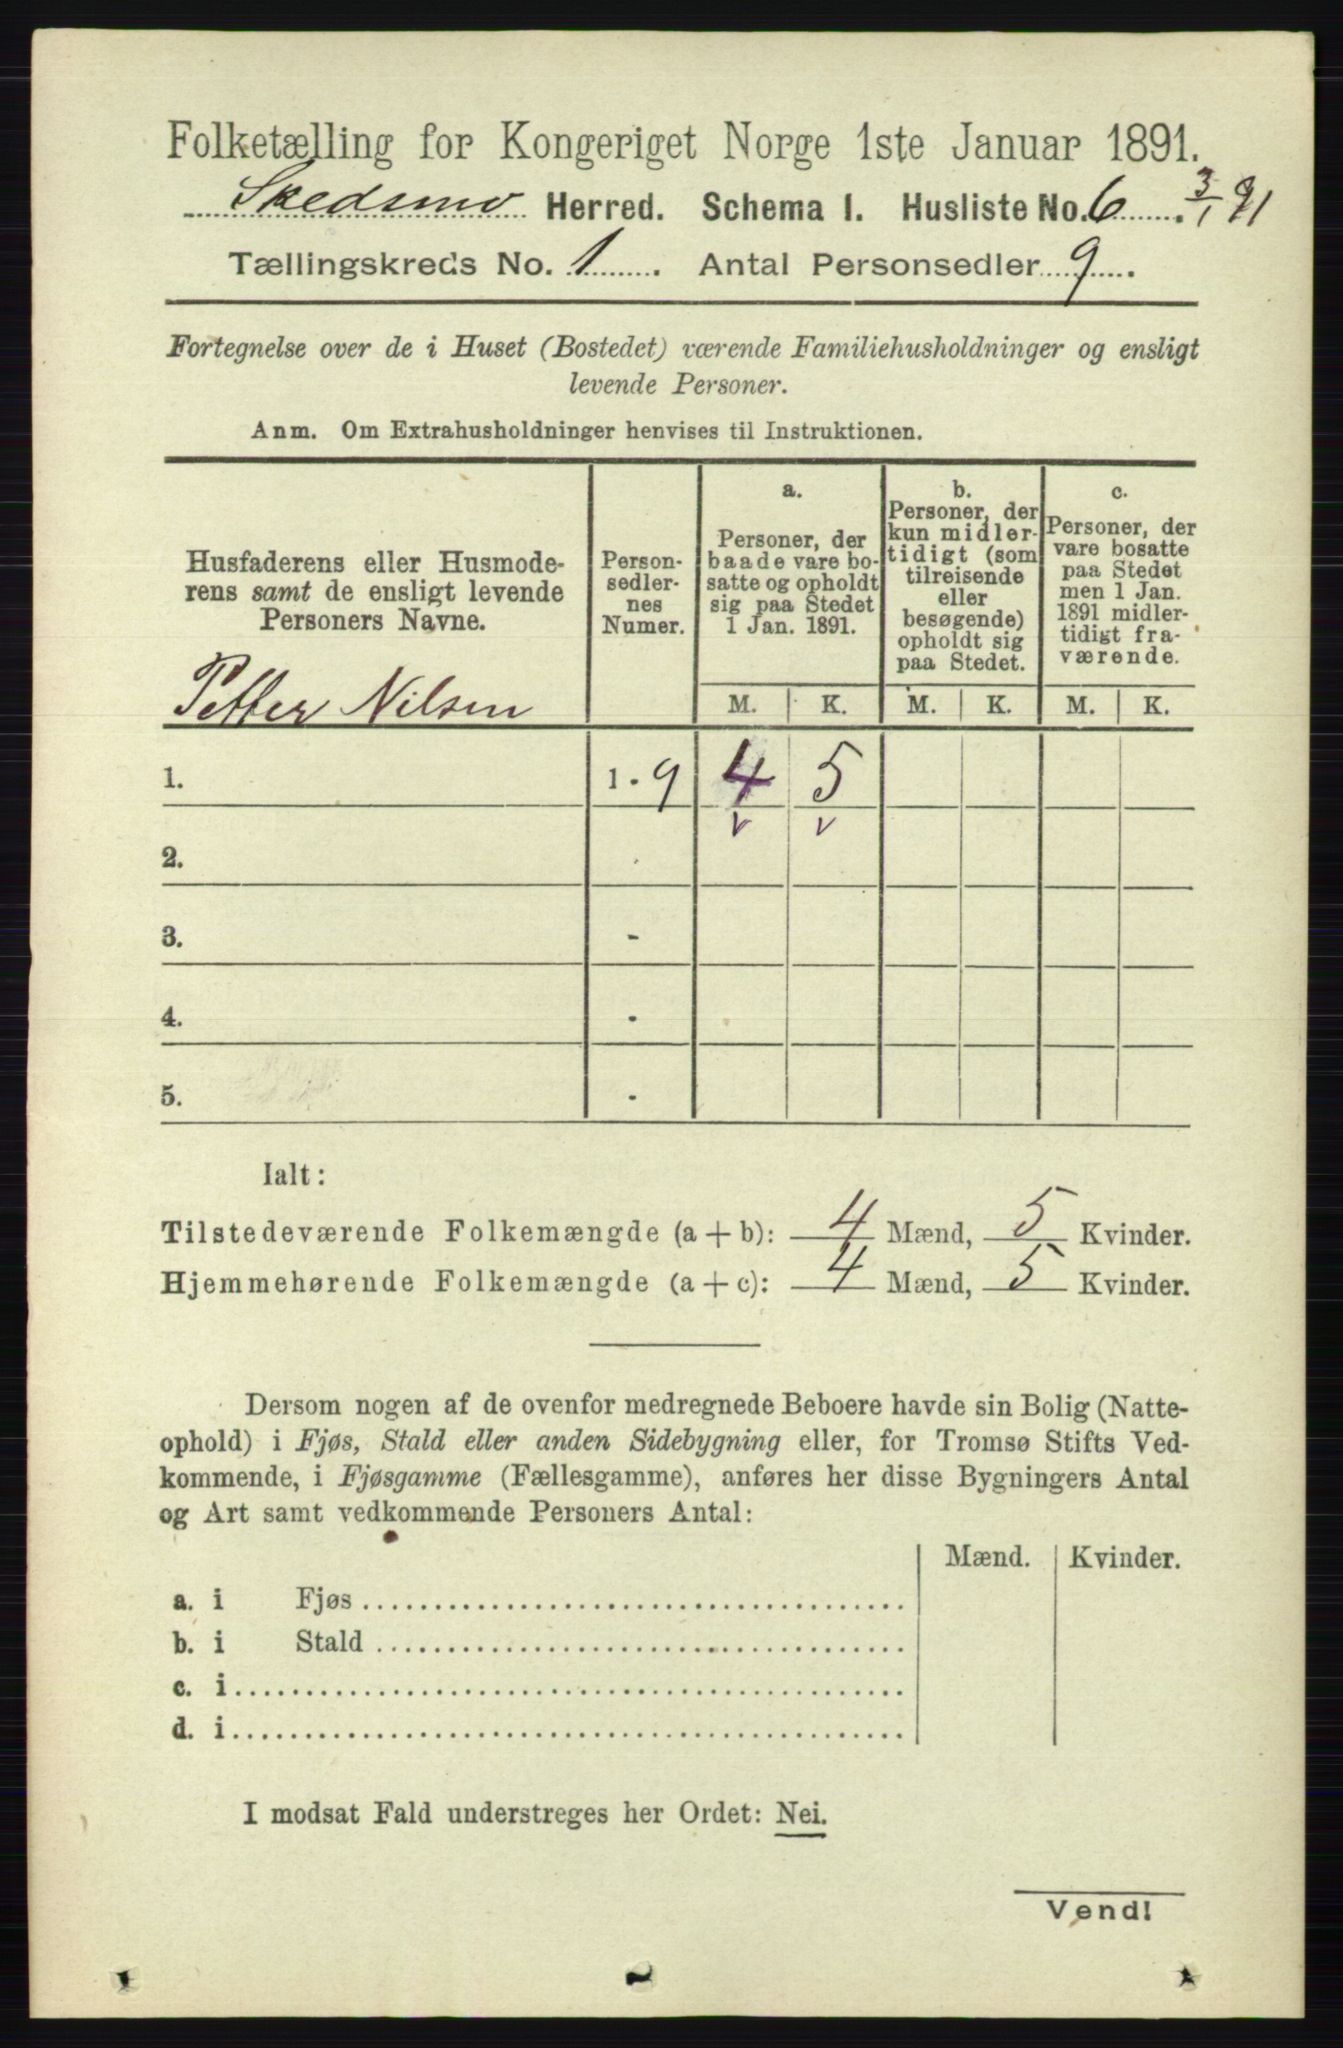 Folketælling for Kongeriget Norge 1ste Januar 1891.
Skedsmo Herred. Schema I. Husliste No. 6. 3/1 91
Tællingskreds No. 1. Antal Personsedler 9.
Fortegnelse over de i Huset (Bostedet) værende Familiehusholdninger og ensligt
levende Personer.
Anm. Om Extrahusholdninger henvises til Instruktionen.
Husfaderens eller Husmode-
rens samt de ensligt levende
Personers Navne.
Person-
sedler-
nes
Numer.
a.
Personer, der
baade vare bo-
satte og opholdt
sig paa Stedet
1 Jan. 1891.
b.
Personer, der
kun midler-
tidigt (som
tilreisende
eller
besøgende)
opholdt sig
paa Stedet.
c.
Personer, der
vare bosatte
paa Stedet
men 1 Jan.
1891 midler-
tidigt fra-
værende.
M. K. M. K. M. K.
Petter Nilsen
1. 1 - 9 4 5
v v
2.
3. -
4. -
5. -
Ialt:
Tilstedeværende Folkemængde (a + b): 4 Mænd, 5 Kvinder.
Hjemmehørende Folkemængde (a + c): 4 Mænd, 5 Kvinder.
Dersom nogen af de ovenfor medregnede Beboere havde sin Bolig (Natte-
ophold) i Fjøs, Stald eller anden Sidebygning eller, for Tromsø Stifts Ved-
kommende, i Fjøsgamme (Fællesgamme), anføres her disse Bygningers Antal
og Art samt vedkommende Personers Antal:
Mænd. Kvinder.
a. i Fjøs
b. i Stald
c. i
d. i
I modsat Fald understreges her Ordet: Nei.
Vend!